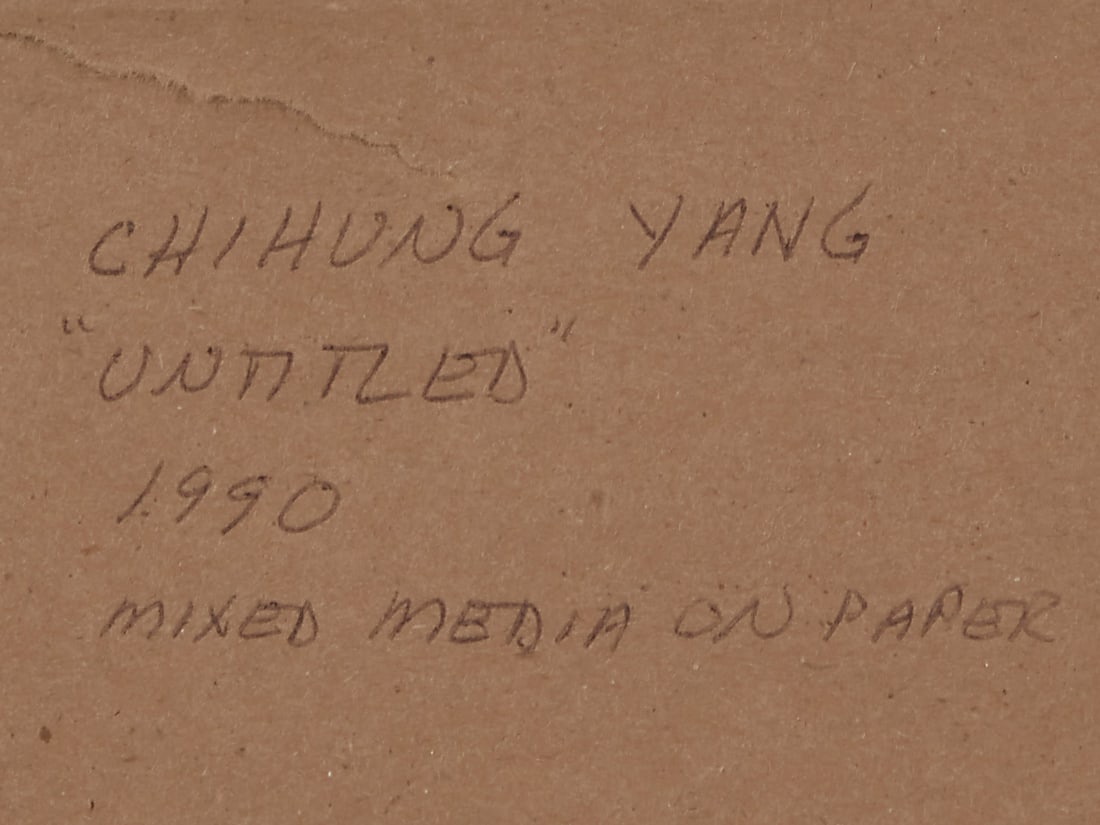 CHIHUNG YANG
"UNTITLED"
1990
MIXED MEDIA ON PAPER